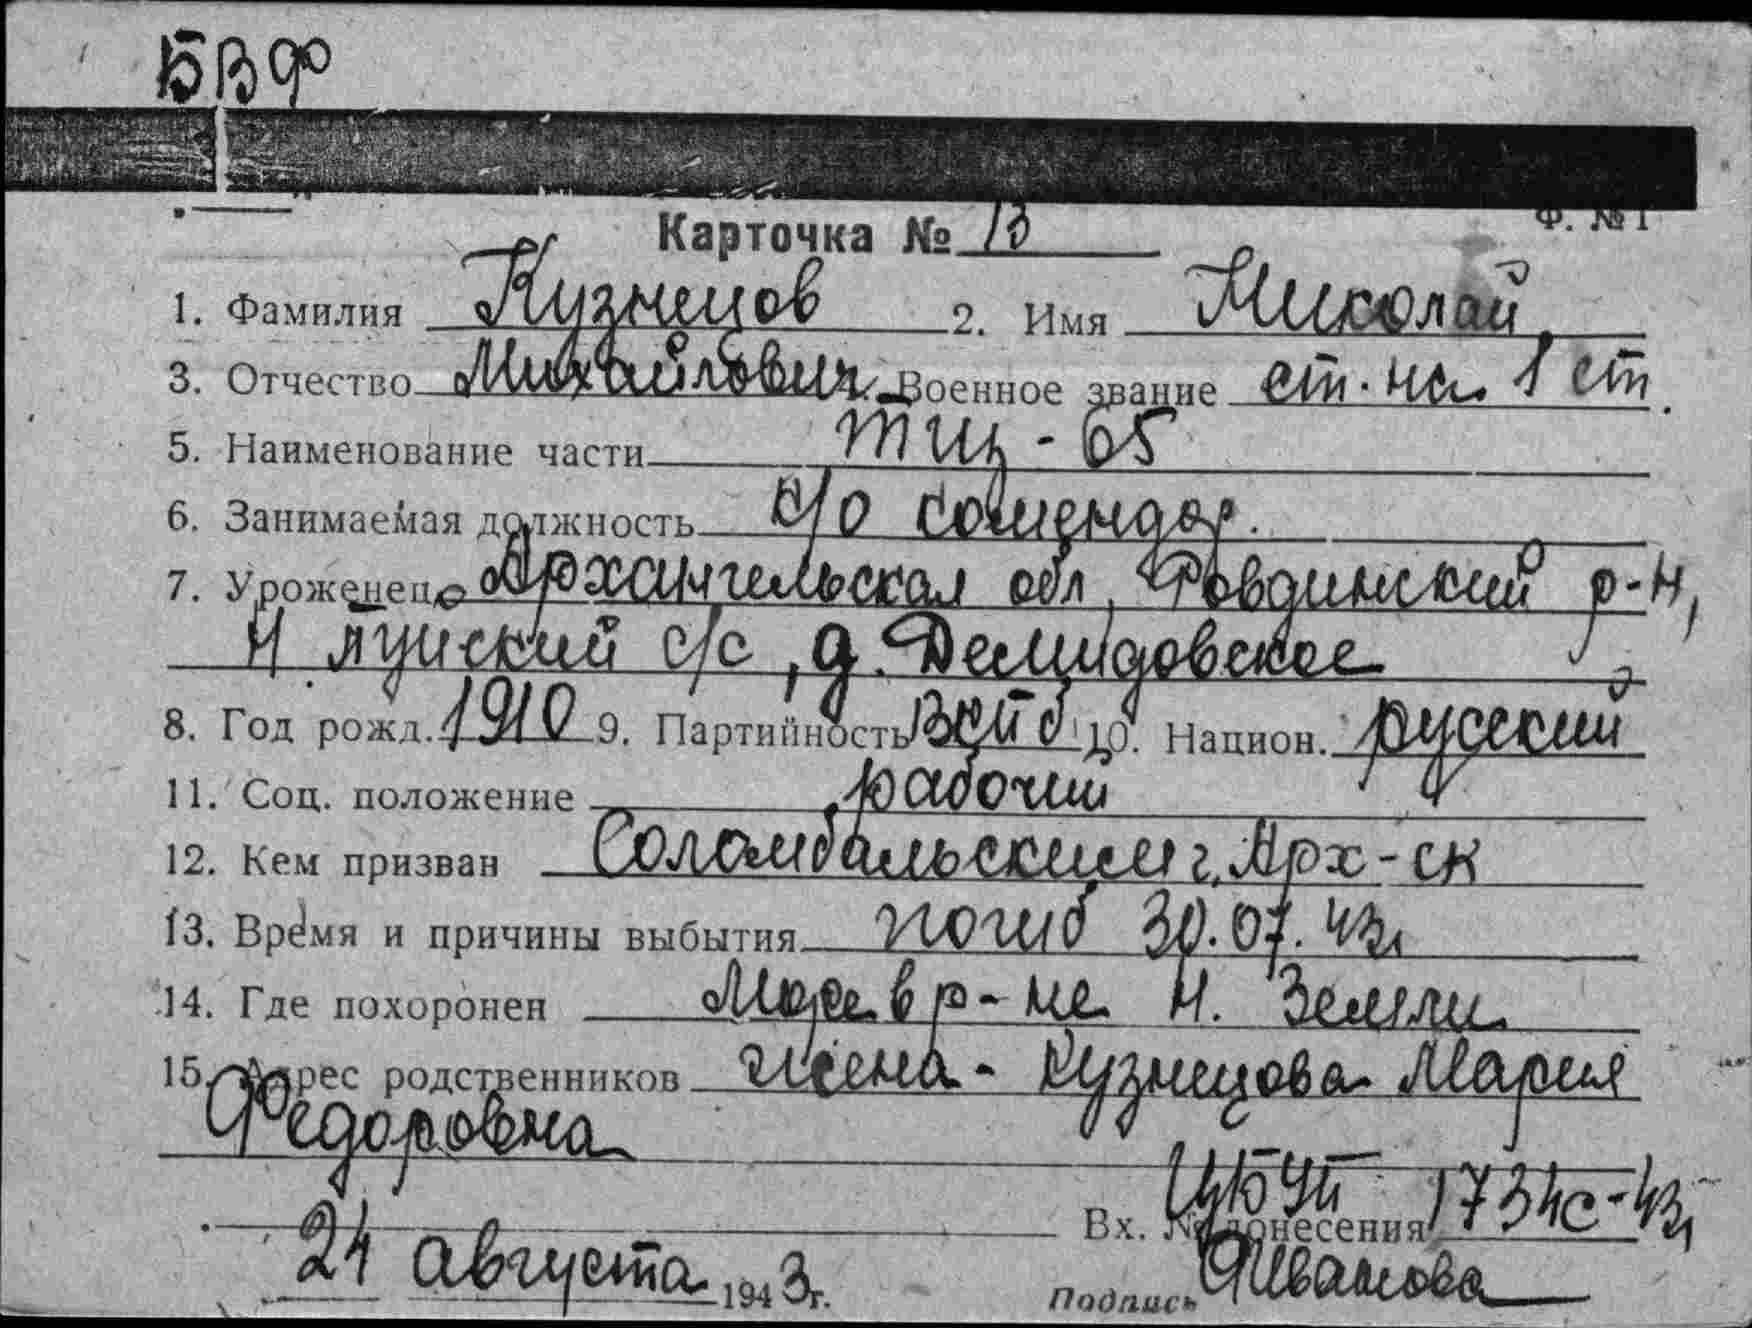 БВФ
Карточка № 13
Ф. № 1
1. Фамилия Кузнецов 2. Имя Николай
3. Отчество Михайлович Военное звание ст. 1 ст
5. Наименование части ТЩ-65
6. Занимаемая должность к/о
7. Уроженец Архангельская обл, Ровдинский р-н,
с/с, д. Демидовское
8. Год рожд. 1910 9. Партийность ВКПб 10. Национ. русский
11. Соц. положение рабочий
12. Кем призван Соломбальским г. Арх-ск
13. Время и причины выбытия погиб 30.07.43
14. Где похоронен Море в р-не Н. Земли
15. Адрес родственников жена - Кузнецова Мария
Федоровна
Вх. № донесения 1734с-43
24 августа 1943 г. Подпись Иванова